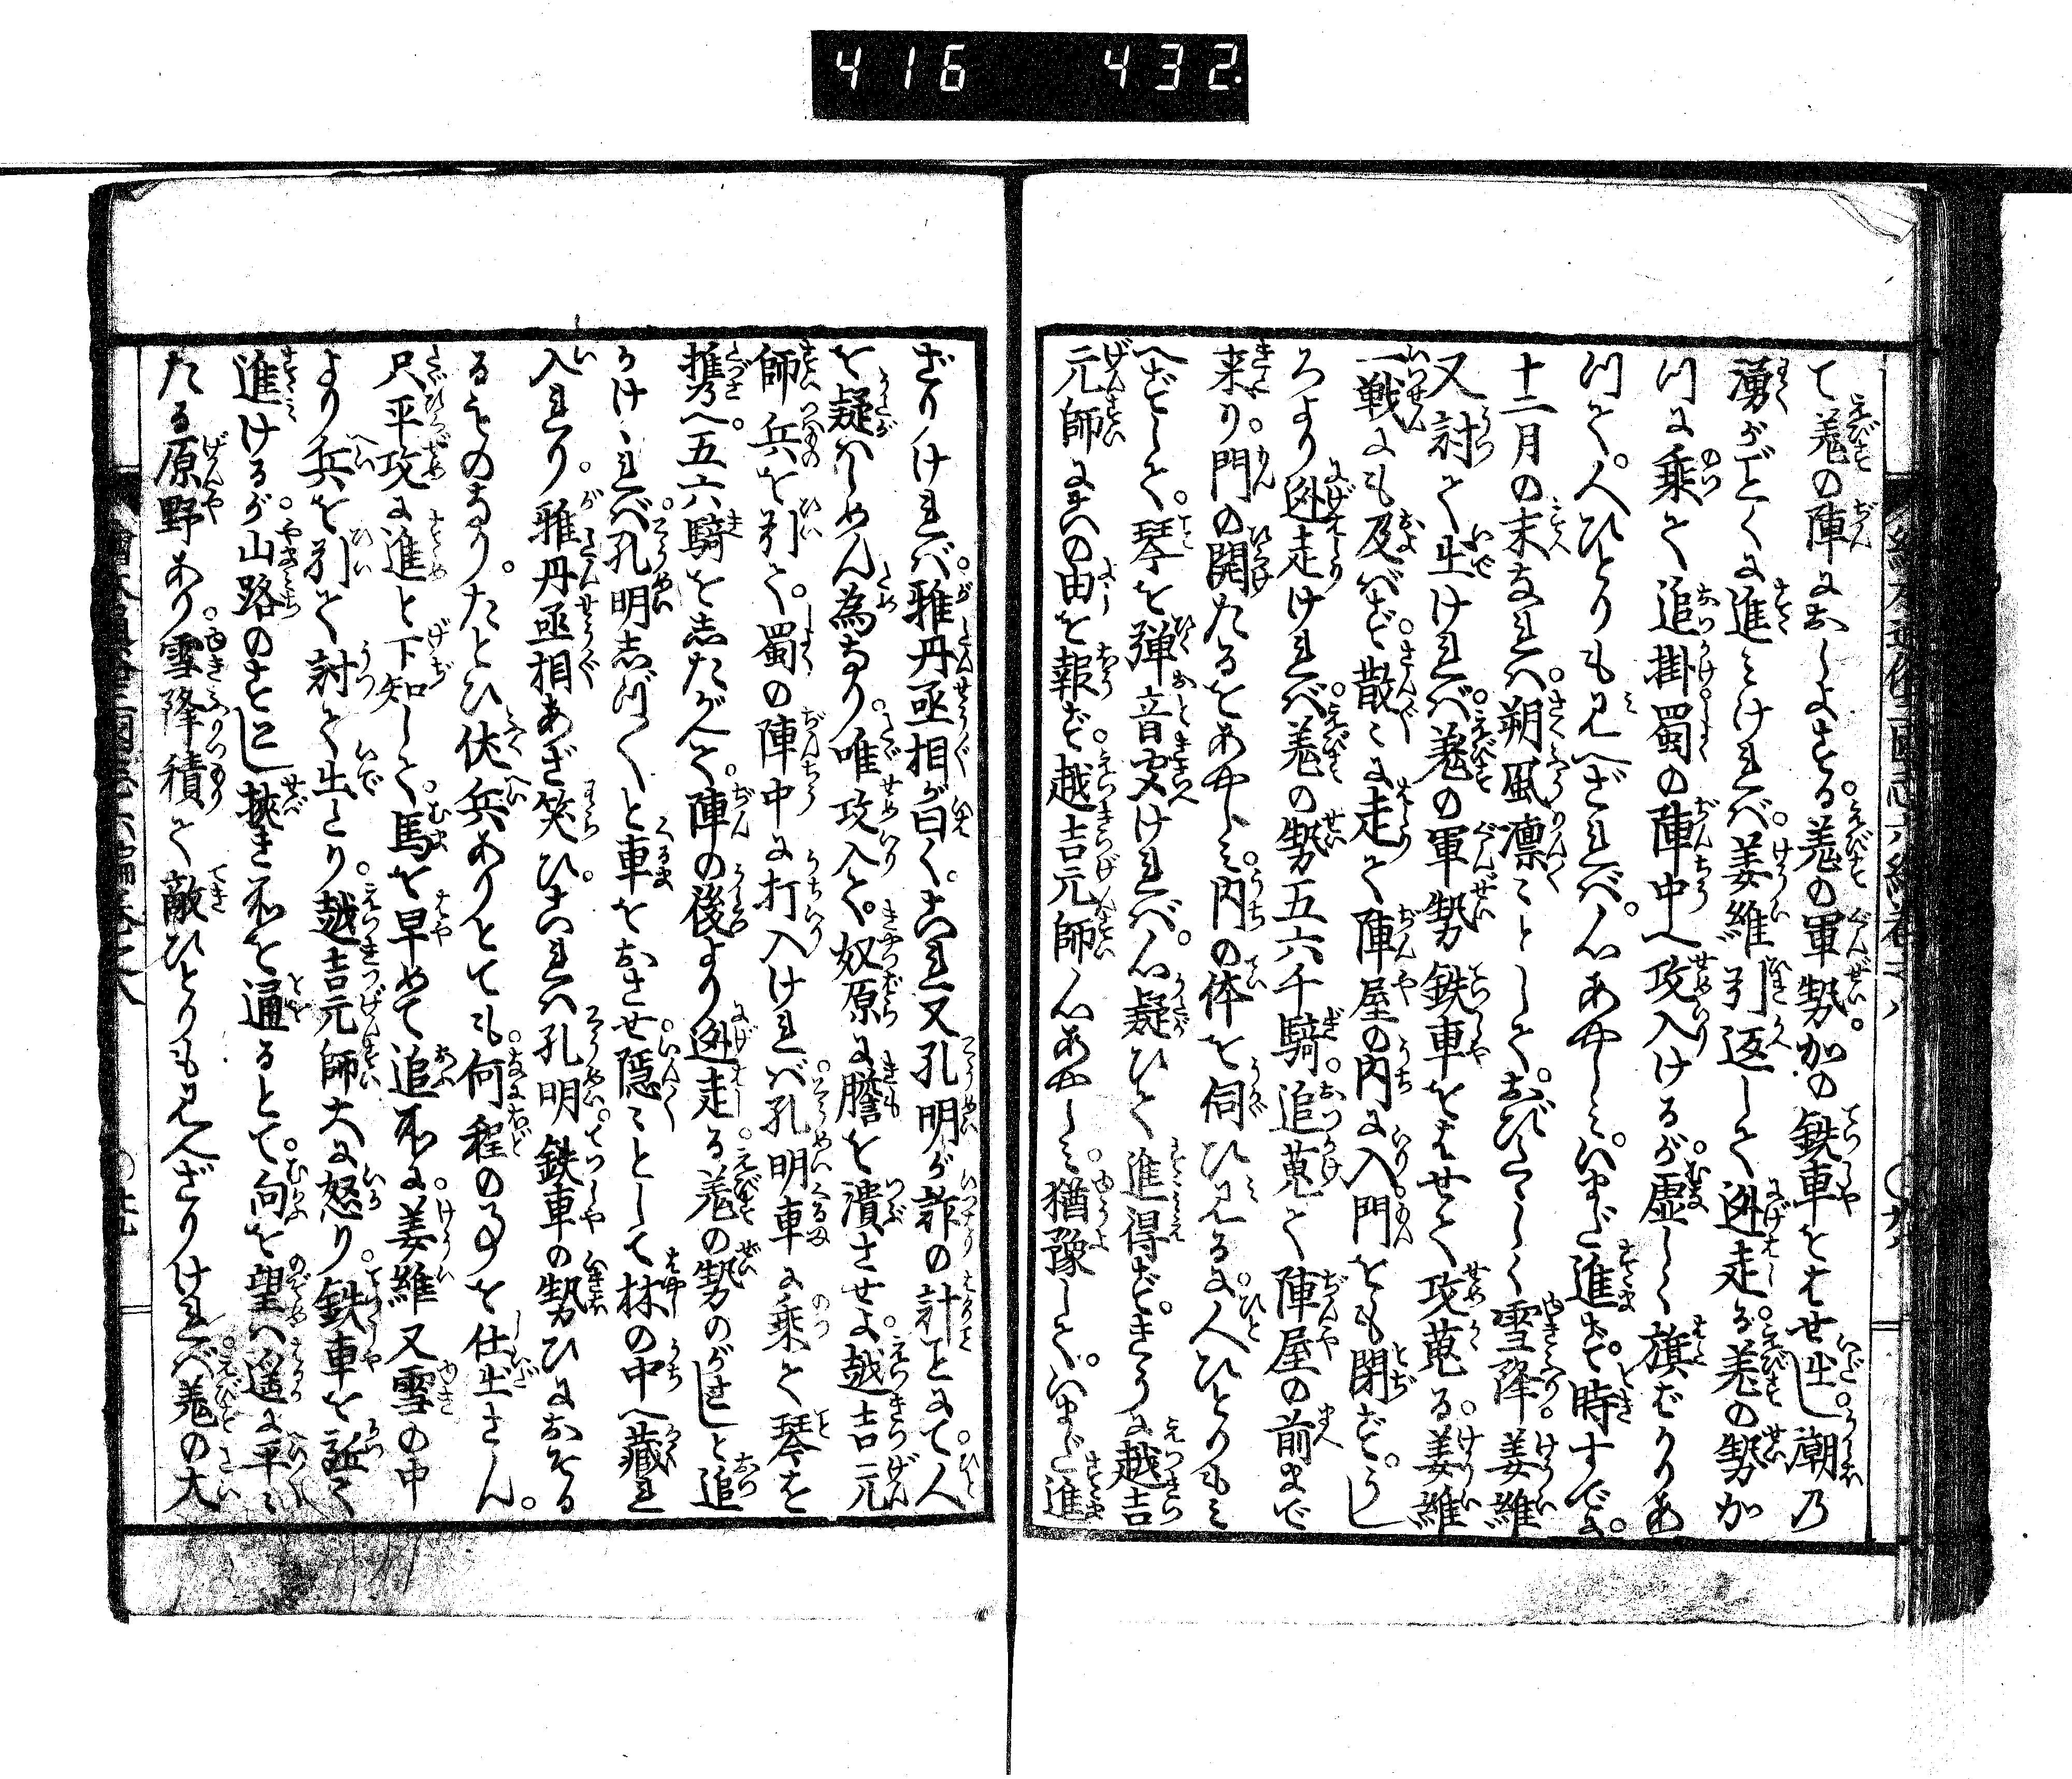 416 432
て羌の陣におしよする。羌の軍勢。加の鉄車をはせ出し。潮乃
湧がごとくに進みければ。姜維引返して迯走る。羌の勢か
川に乗て追掛蜀の陣中へ攻入けるが。虚しく旗ばかりあ
川て。人ひとりも見へざれば。心あやしみ。いまだ進まず。時すでに。
十二月の末なれハ。朔風凛ミとして。おびたゝしく雪降。姜維
又討て出ければ。羌の軍勢鉄車をはせて攻蒐る。姜維
一戦にも及ばず。散ミに走て陣屋の内に入。門をも閉ず。うし
ろより迯走ければ。羌の勢五六千騎。追蒐て陣屋の前まで
来り。門の開たるをあやしみ。内の体を伺ひ見るに。人ひとりもミ
へずして。琴を弾音聞へければ。心疑ひて進得ず。きうに越吉
元師にその由を報ず。越吉元師心あやしミ。猶豫して。いまだ進
ざりければ。雅丹丞相が曰く。これ又孔明が詐の計ことにて。人
を疑ハしめん為なり。唯攻入て。奴原に膽を潰させよ。越吉元
師兵を引て。蜀の陣中に打入ければ。孔明車に乗て琴を
携へ。五六騎を志たがへて。陣の後より迯走る。羌の勢のがさじと追
かけゝれバ。孔明志川〳〵と車をおさせ。隠ミとして林の中へ藏れ
入れり。雅丹丞相あざ笑ひ。これハ孔明。鉄車の勢ひにおそる
るものなり。たとひ伏兵ありとても。何程の事を仕出さん。
只平攻に進めと下知して。馬を早めて追所に。姜維又雪の中
より兵を引て討て出たり。越吉元師大に怒り。鉄車を誣て
進けるが。山路のさがしく挟き所を通るとて。向を望ハ遥に平ミ
たる原野あり。雪降積て敵ひとりも見へざりけれバ。羌の大